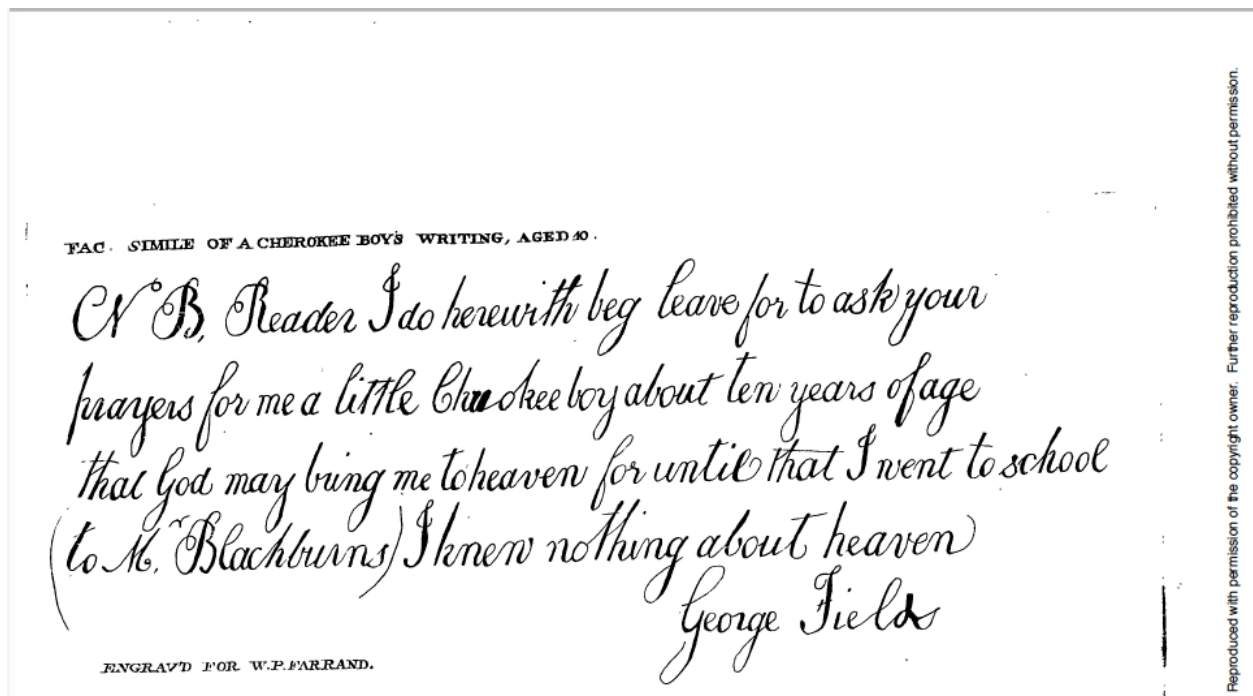 FAC. SIMILE OF A CHEROKEE BOY'S WRITING, AGED 10.
N.º B. Reader I do herewith beg leave for to ask your
prayers for me a little Cherokee boy about ten years of age
that God may bring me to heaven for until that I went to school
(to Mʳ. Blackburns) I knew nothing about heaven
George Fields
ENGRAV'D FOR W.P.FARRAND.
Reproduced with permission of the copyright owner. Further reproduction prohibited without permission.